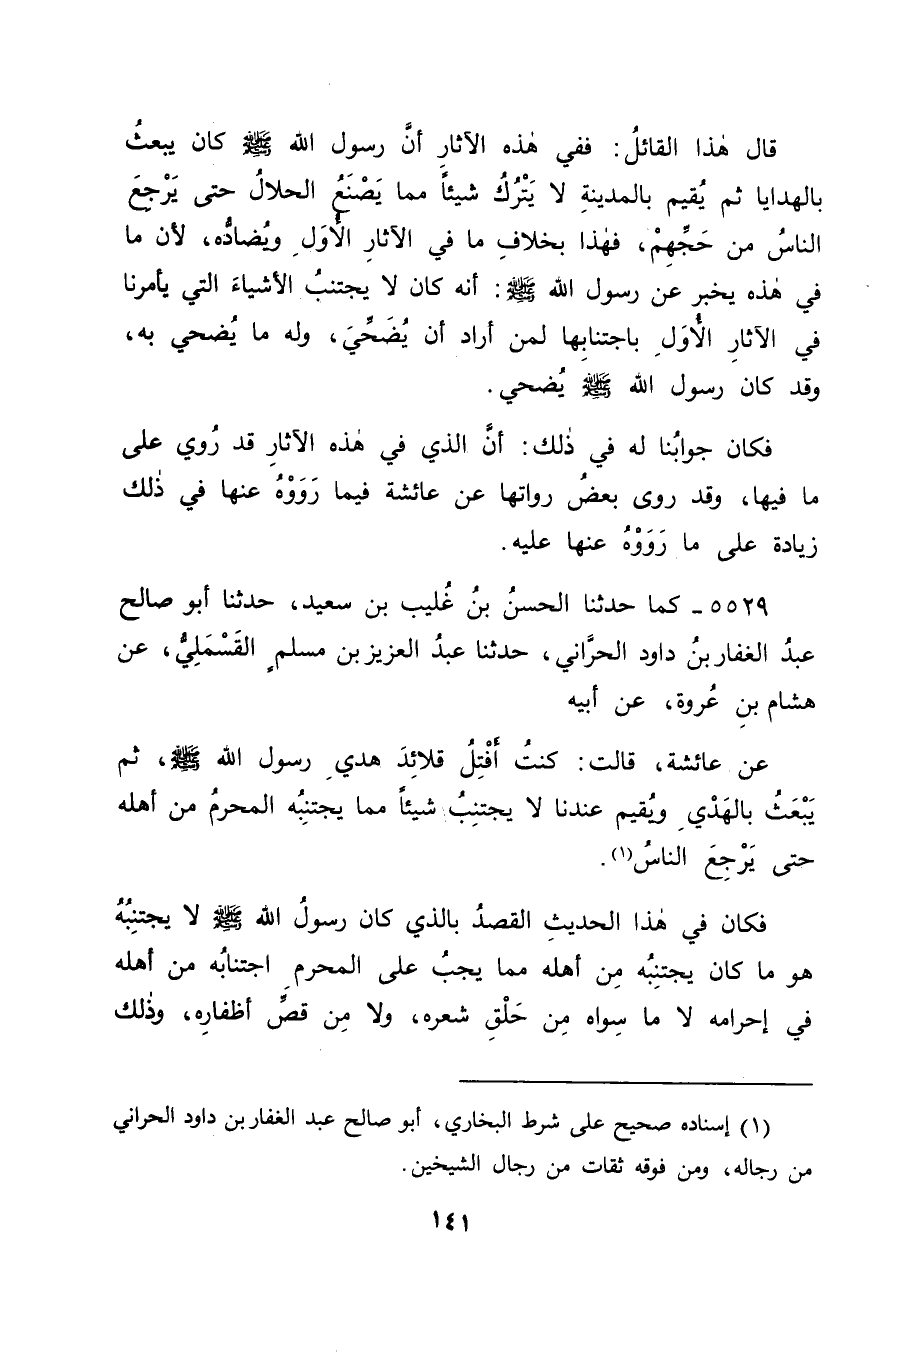 قال هٰذا القائلُ: ففي هٰذه الآثارِ أنَّ رسول الله ﷺ كان يبعثُ
بالهدايا ثم يُقيم بالمدينةِ لا يَتْرُكُ شيئاً مما يَصْنَعُ الحلالُ حتى يَرْجِعَ
الناسُ من حَجِّهِمْ، فهٰذا بخلافِ ما في الآثارِ الْأُوَلِ ويُضادُّه، لأن ما
في هٰذه يخبر عن رسول الله ﷺ: أنه كان لا يجتنبُ الأشياءَ التي يأمرنا
في الآثارِ الْأُوَلِ باجتنابِها لمن أراد أن يُضَحِّيَ، وله ما يُضحي به،
وقد كان رسول الله ﷺ يُضحي.
فكان جوابُنا له في ذٰلك: أنَّ الذي في هٰذه الآثارِ قد رُوي على
ما فيها، وقد روى بعضُ رواتها عن عائشة فيما رَوَوْهُ عنها في ذٰلك
زيادة على ما رَوَوْهُ عنها عليه.
٥٥٢٩ - كما حدثنا الحسنُ بنُ غُليب بن سعيد، حدثنا أبو صالح
عبدُ الغفار بنُ داود الحرَّاني، حدثنا عبدُ العزيز بن مسلمٍ القَسْمَلِيُّ، عن
هشام بنِ عُروة، عن أبيه
عن عائشة، قالت: كنتُ أَفْتِلُ قلائِدَ هديِ رسول الله ﷺ، ثم
يَبْعَثُ بالهَدْيِ ويُقيم عندنا لا يجتنِبُ شيئاً مما يجتنِبُه المحرمُ من أهله
حتى يَرْجِعَ الناسُ(١).
فكان في هٰذا الحديثِ القصدُ بالذي كان رسولُ الله ﷺ لا يجتنِبُهُ
هو ما كان يجتنِبُه مِن أهله مما يجبُ على المحرمِ اجتنابُه من أهله
في إحرامه لا ما سِواه مِن حَلْقِ شعره، ولا مِن قصِّ أظفاره، وذٰلك
(١) إسناده صحيح على شرط البخاري، أبو صالح عبد الغفار بن داود الحراني
من رجاله، ومن فوقه ثقات من رجال الشيخين.
١٤١